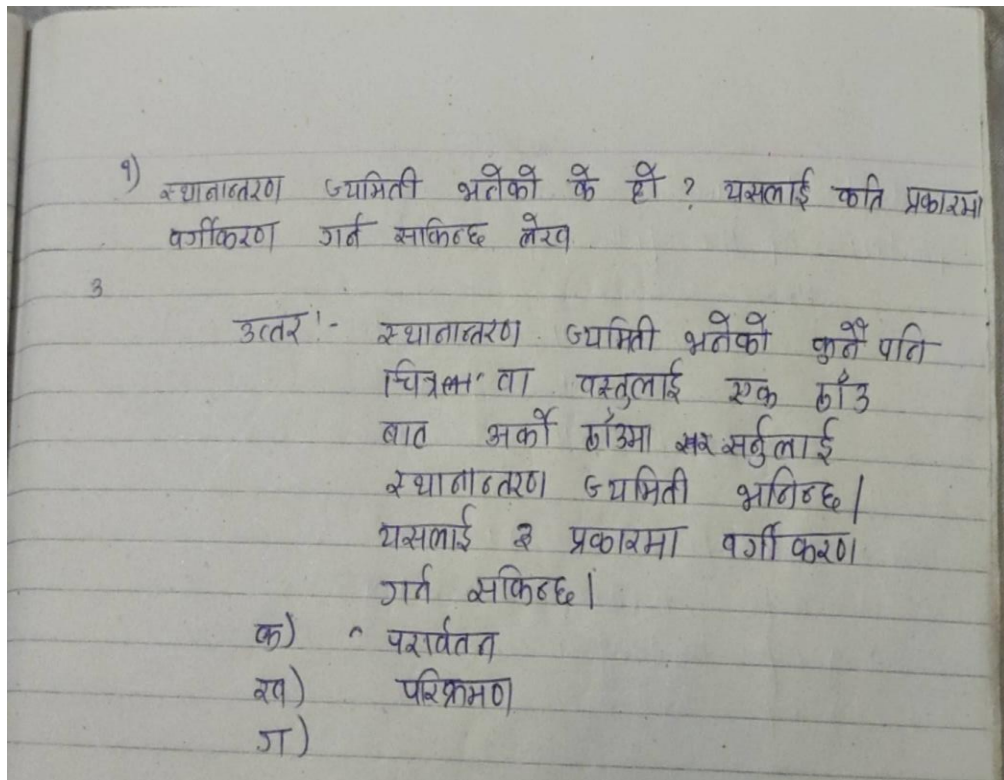 १) स्थानान्तरण ज्यमिती भनेको के हो ? यसलाई कति प्रकारमा
वर्गीकरण गर्न साकिन्छ लेख
3
उत्तर :- स्थानान्तरण ज्यमिती भनेको कुनै पनि
चित्र वा वस्तुलाई एक ठाँउ
बाट अर्को ठाँउमा सर्नुलाई
स्थानान्तरण ज्यमिती भनिन्छ।
यसलाई प्रकारमा वर्गीकरण
गर्न सकिन्छ।
क) परार्वतन
ख) परिक्रमण
ग)